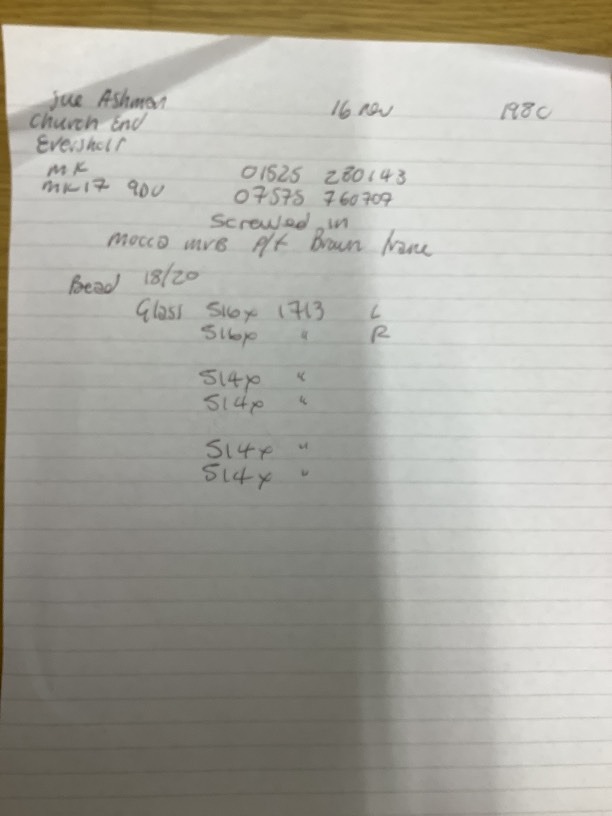 Sue Ashman 16 nov 1980
Church End
Eversholt
MK 01525 280143
MK17 9DU 07575 760709
Screwed in
Mocca Brown frame
Bead 18/20
Glass 516x 1713 L
516x " R
514x "
514x "
514x "
514x "